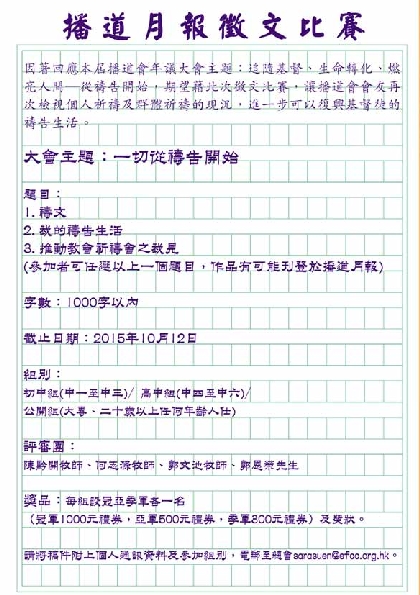 播道月報徵文比賽
因著回應本屆播道會年議大會主題：追隨基督、生命轉化、燃
亮人間—從禱告開始，期望藉此次徵文比賽，讓播道會會友再
次檢視個人祈禱及群體祈禱的現況，進一步可以復興基督徒的
禱告生活。
大會主題：一切從禱告開始
題目：
1. 禱文
2. 我的禱告生活
3. 推動教會祈禱會之我見
(參加者可任選以上一個題目，作品有可能刊登於播道月報)
字數：1000字以內
截止日期：2015年10月12日
組別：
初中組(中一至中三)/ 高中組(中四至中六)/
公開組(大專、二十歲以上任何年齡人仕)
評審團：
陳黔開牧師、何志滌牧師、郭文池牧師、鄺恩榮先生
獎品：每組設冠亞季軍各一名
（冠軍1000元禮券，亞軍500元禮券，季軍300元禮券）及獎狀。
請將稿件附上個人通訊資料及參加組別，電郵至總會sarasuen@efcc.org.hk。